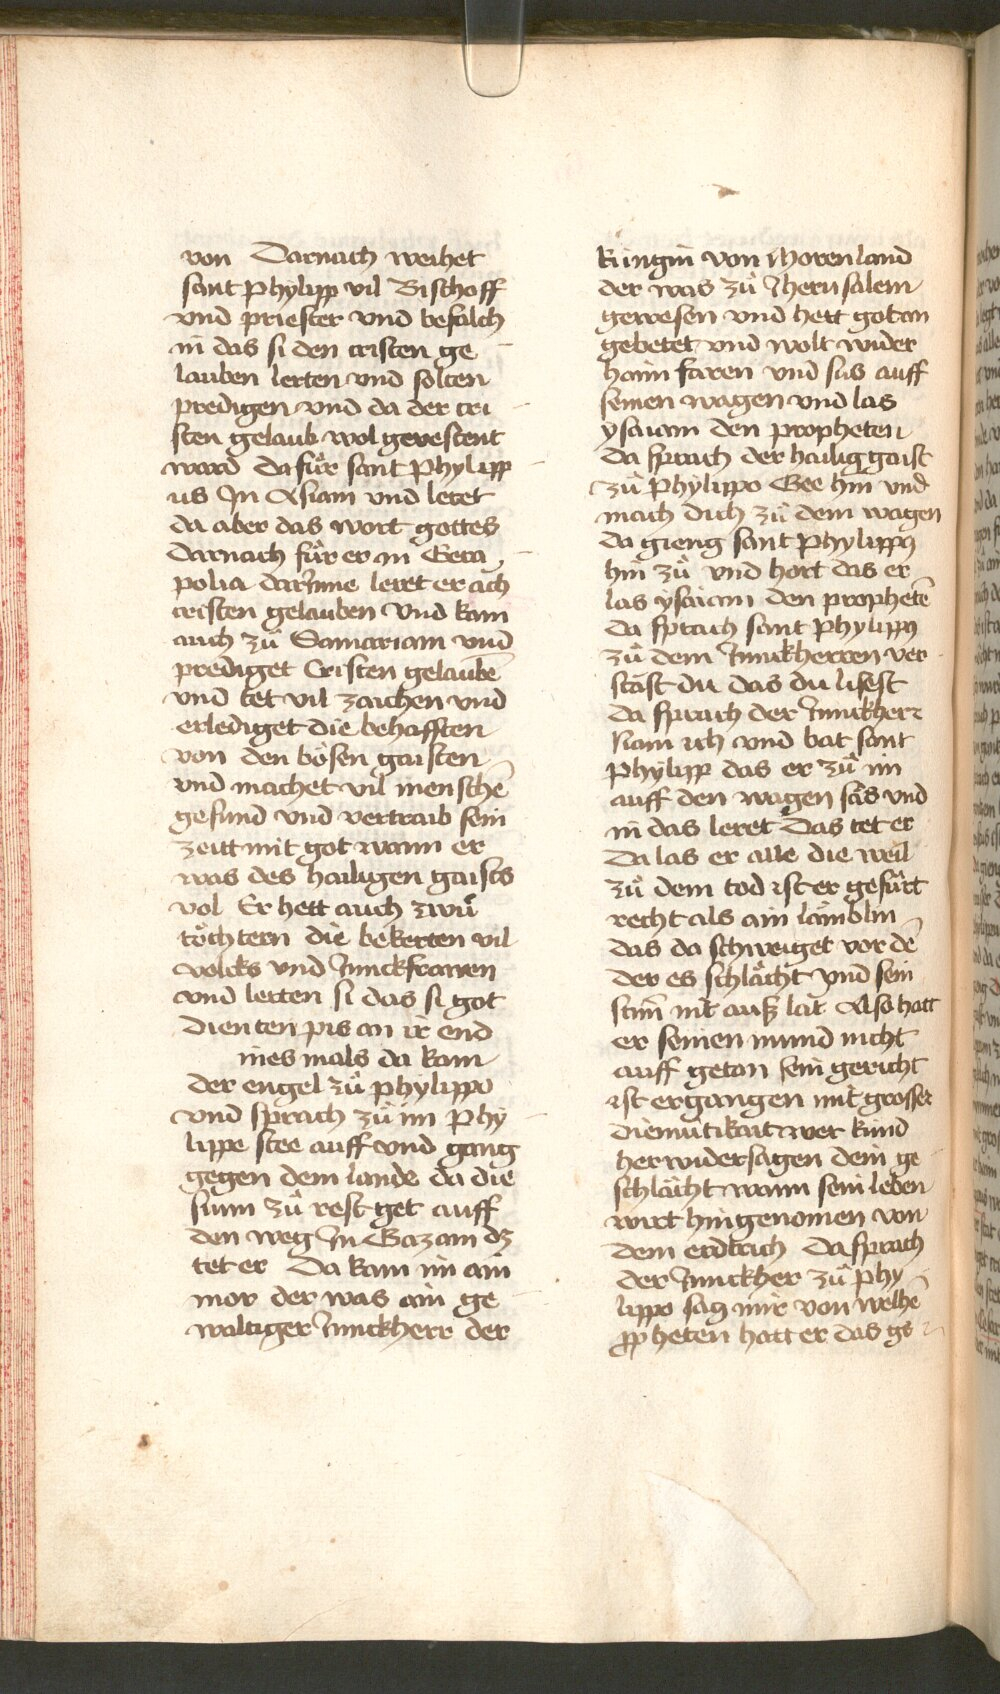 von Darnach weihet
sant Phylipp vil Bischoff
vnd priester vnd befalch
in das si den cristen ge
lauben lerten vnd solten
predigen vnd da der cri
sten gelaub wol gevestent
ward da fuͦr sant Phylipp
us In Asiam vnd leret
da aber das wort gottes
Darnach fuͦr er in Gera
polia darJnne leret er ach
cristen gelauben vnd kam
auch zuͦ Samariam vnd
prediget Cristen gelaubē
vnd tet vil zaichen vnd
erlediget die behafften
von den boͤsen gaisten
vnd machet vil menschē
gesund vnd vertraib sein
zeitt mit got wann er
was des hailigen gaists
vol Er hett auch zwuͦ
toͤchtern die bekerten vil
volcks vnd Junckfrawen
vnd lerten si das si got
dienten pis an ir end
ines mals da kam
der engel zuͦ phylippo
vnd sprach zuͦ im Phy
lippe stee auff vnd gang
gegen dem lande da die
sunn zuͦ rest get auff
den weg In Gazam dz
tet er Da kam im ain
mor der was ain ge
waltiger Junckherr der
kungin von Morenland
der was zuͦ Jherusalem
gewesen vnd hett gotan
gebetet vnd wolt wider
haim faren vnd sas auff
seinen wagen vnd las
ysaiam den propheten
Da sprach der hailig gaist
zuͦ Phylippo Gee hin vnd
mach dich zuͦ dem wagen
da gieng sant Phylippꝫ
hin zuͦ vnd hort das er
las ysaiam den prophetē
Da sprach sant Phylippꝫ
zuͦ dem Junckherren ver
stast du das du lisest
Da sprach der Junckherr
Nain ich vnd bat sant
Phylipp das er zuͦ im
auff den wagen saͤs vnd
in das leret Das tet er
Da las er alle die weil
zuͦ dem tod ist er gefuͤrt
recht als ain laͤmblin
das da schweiget vor dē
der es schlaͤcht vnd sein
stim̄ nit auß lat Also hatt
er seinen mund nicht
auff getan sein gericht
ist ergangen mit grosser
diemuͤtikait wer kund
her widersagen dem ge
schlaͤcht wann sein leben
wirt hingenomen von
dem erdtrich Da sprach
der Junckher zuͦ Phy
lippo sag mir von welhē
ꝓpheten hatt er das ge